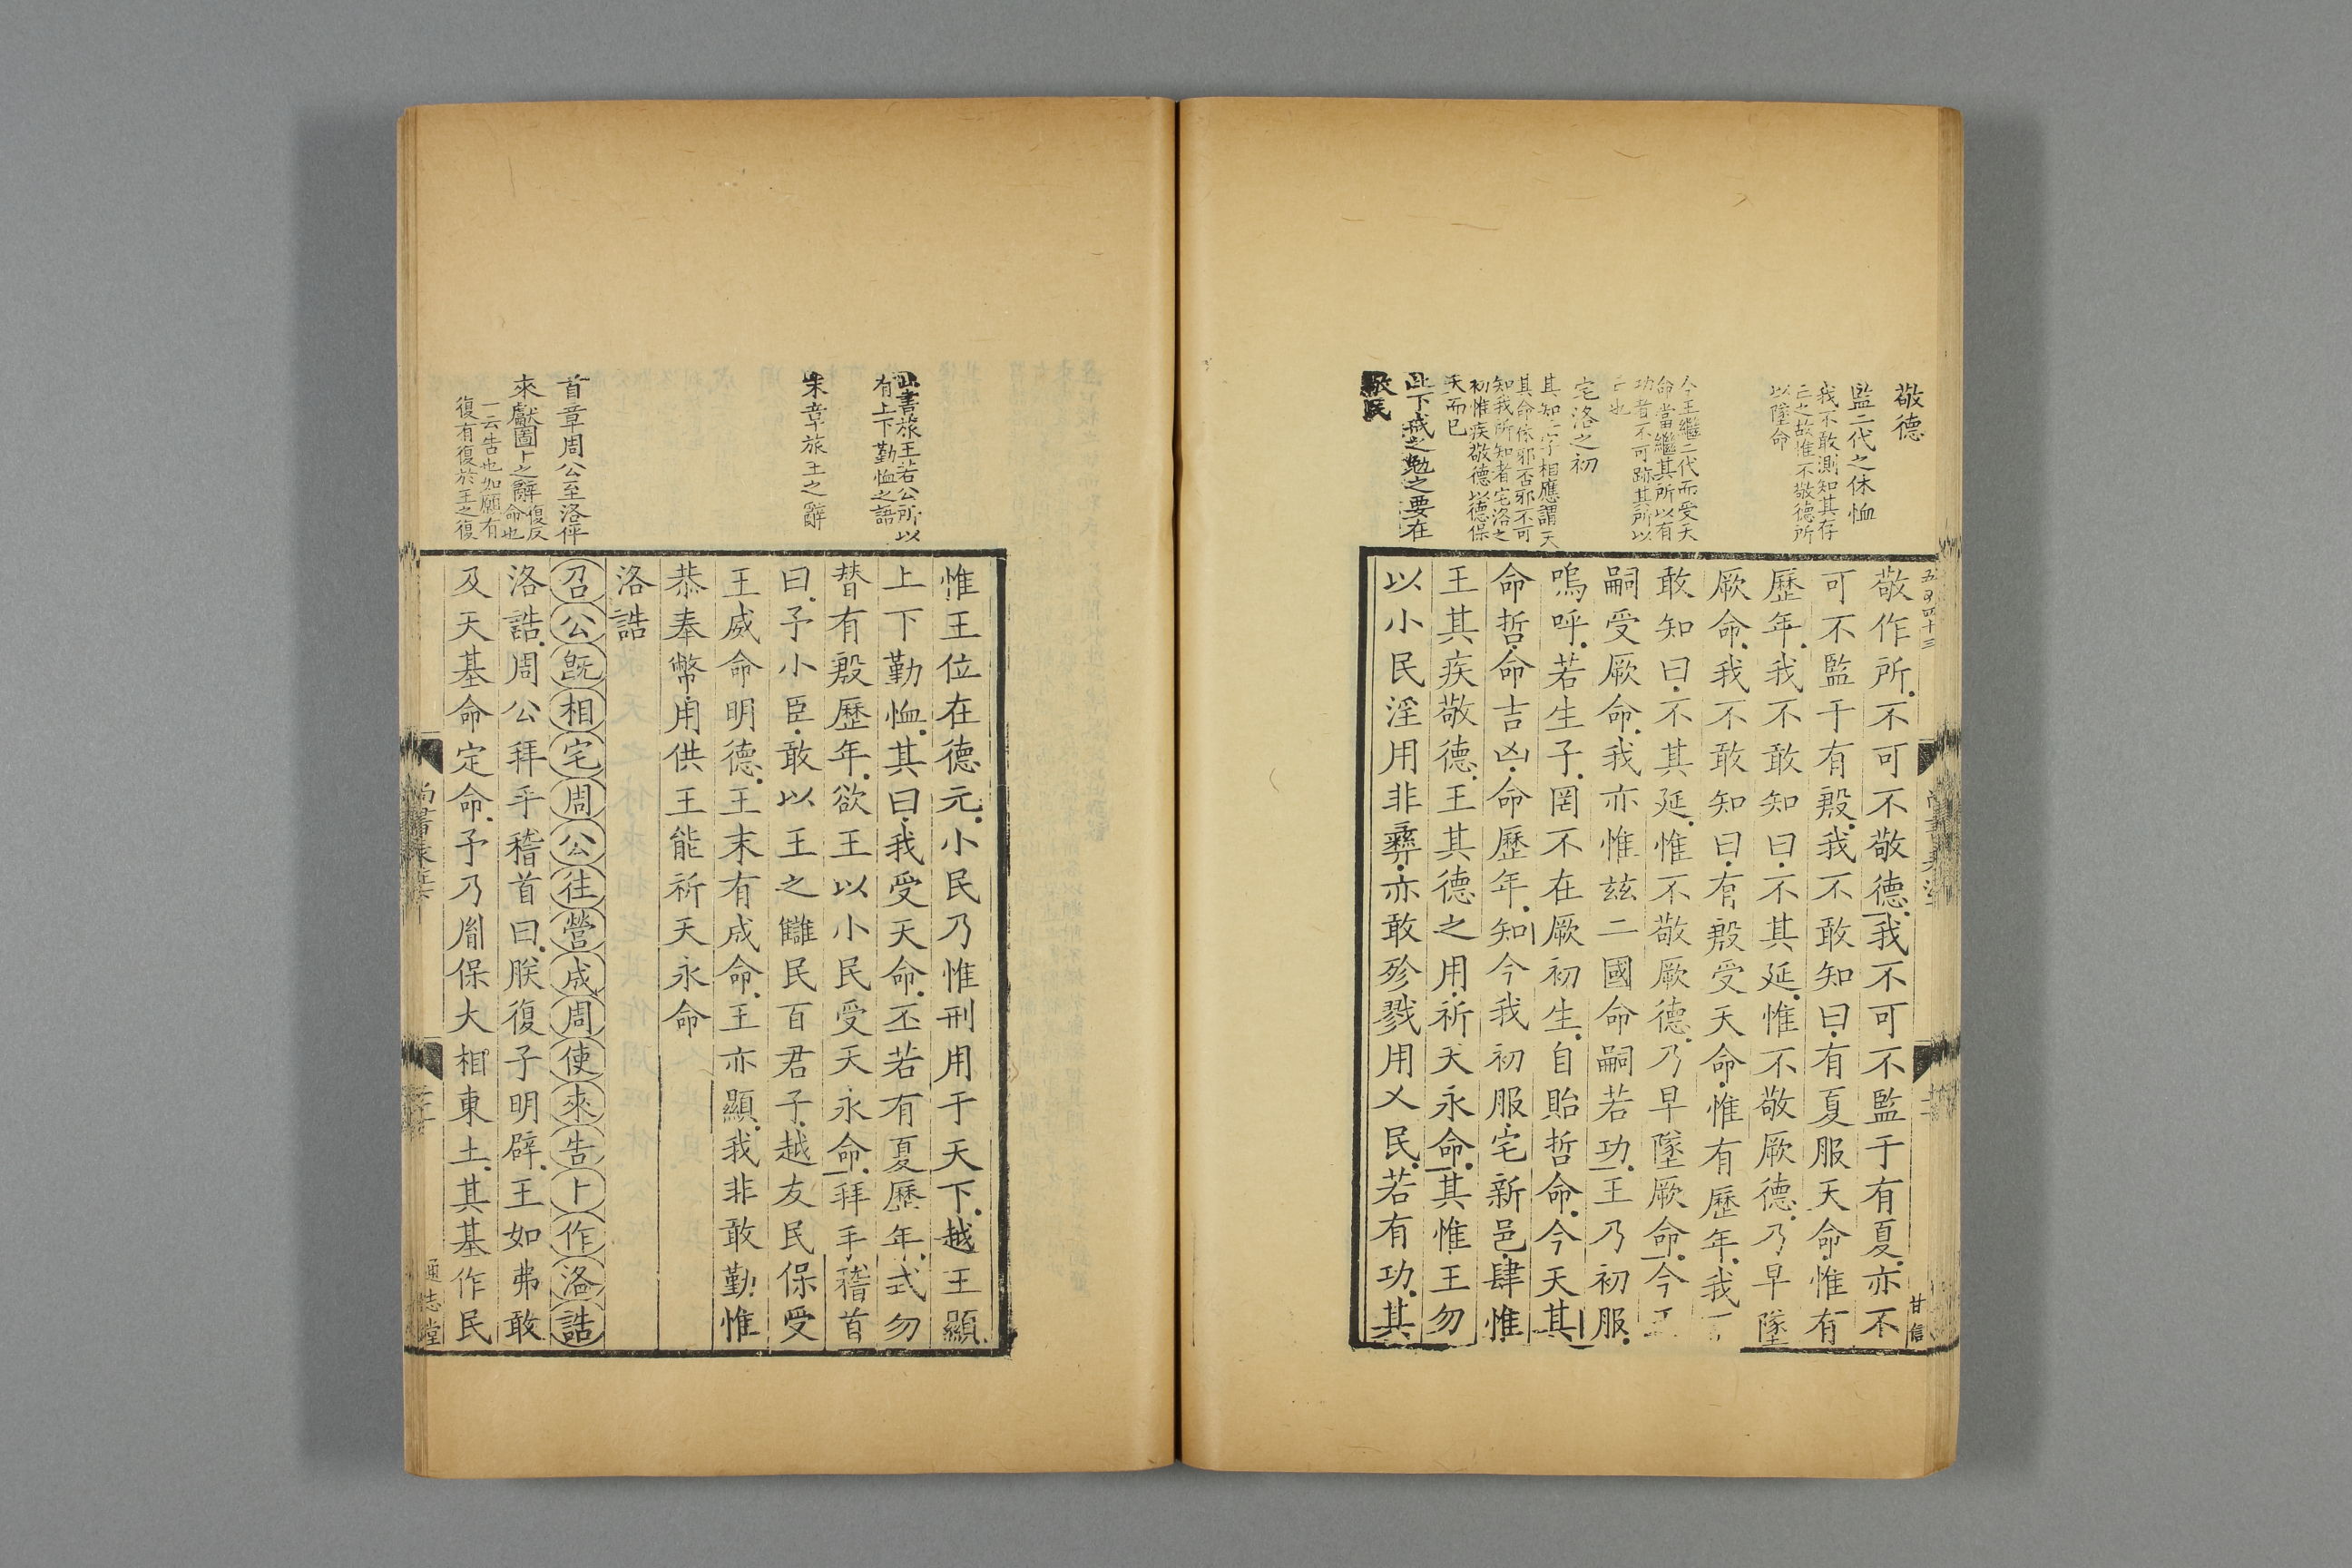 敬德
監二代之休恤
我不敢測知其存
亡之故惟不敬德所
以墜命
今王繼二代而受天
命當繼其所以有
功者不可跡其所以
亡也
宅洛之初
其知二字相應謂天
其命休邪否邪不可
知我所知者宅洛之
初惟疾敬德以德保
天而已
此下戒之勉之要在
敬民
敬作所不可不敬德我不可不監于有夏亦不
可不監于有殷我不敢知曰有夏服天命惟有
歷年我不敢知曰不其延惟不敬厥德乃早墜
厥命我不敢知曰有殷受天命惟有歷年我
敢知曰不其延惟不敬厥德乃早墜厥命今王
嗣受厥命我亦惟茲二國命嗣若功王乃初服
嗚呼若生子罔不在厥初生自貽哲命今天其
命哲命吉凶命歷年知今我初服宅新邑肆惟
王其疾敬德王其德之用祈天永命其惟王勿
以小民淫用非彝亦敢殄戮用乂民若有功其
甘信
此書旅王若公所以
有上下勤恤之語
末章旅王之辭
首章周公至洛伻
來獻圖卜之辭復反命也
一云告也如願有
復有復於王之復
惟王位在德元小民乃惟刑用于天下越王顯
上下勤恤其曰我受天命丕若有夏歷年式勿
替有殷歷年欲王以小民受天永命拜手稽首
曰予小臣敢以王之讎民百君子越友民保受
王威命明德王末有成命王亦顯我非敢勤惟
恭奉幣用供王能祈天永命
洛誥
召公旣相宅周公往營成周使來告卜作洛誥
洛誥周公拜手稽首曰朕復子明辟王如弗敢
及天基命定命予乃胤保大相東土其基作民
通志堂